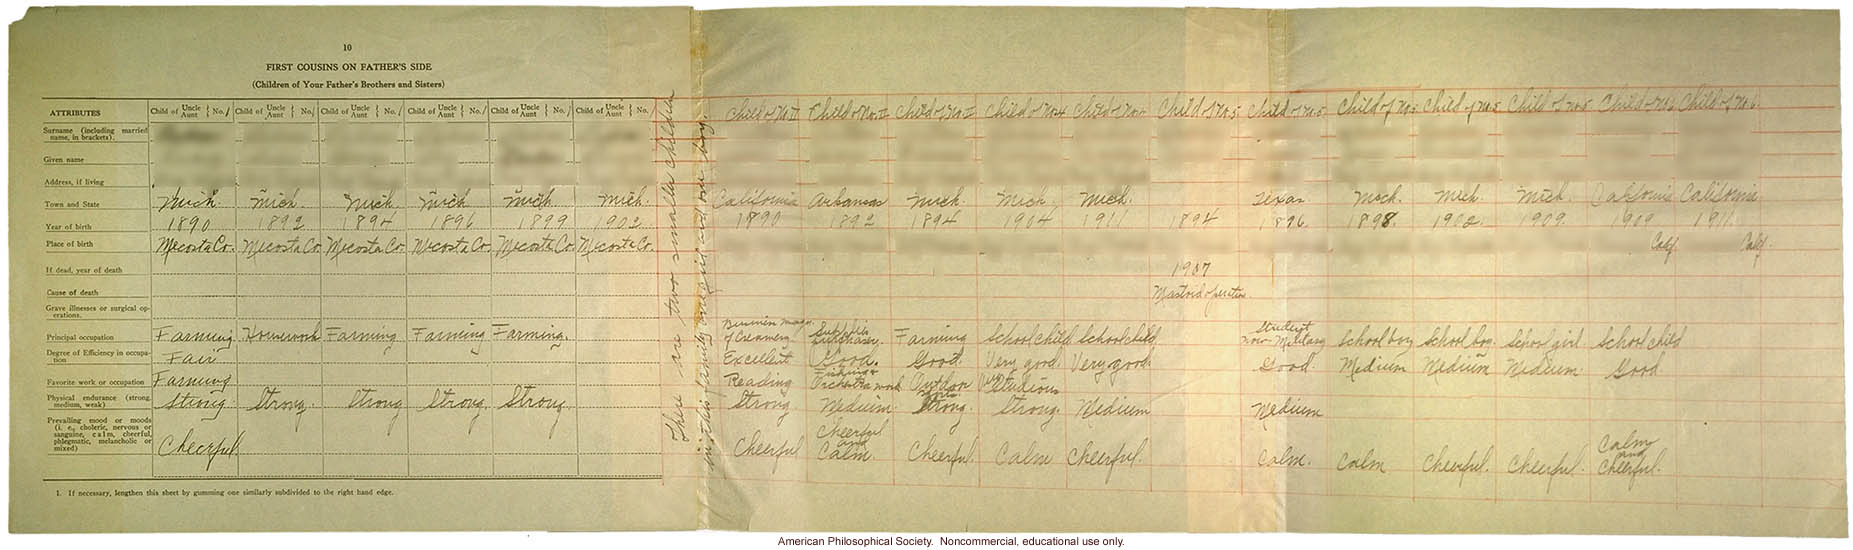 10
FIRST COUSINS ON FATHER'S SIDE
(Children of Your Father's Brothers and Sisters)
ATTRIBUTES Child of Uncle Aunt } No. 1 Child of Uncle Aunt } No. 1 Child of Uncle Aunt } No. 1 Child of Uncle Aunt } No. 1 Child of Uncle Aunt } No. 1 Child of Uncle Aunt } No. Child of No. II Child of No. II Child of No. II Child of No. 4 Child of No. Child of No. 5 Child of No. 5 Child of No. 5 Child of No. 5 Child of No. 5 Child of No. 6 Child of No. 6
Surname (including married name, in brackets).
Given name
Address, if living
Town and State Mich Mich. Mich Mich Mich Mich. California Arkansas Mich. Mich. Mich. Texas. Mich. Mich. Mich. California California
Year of birth 1890 1892 1894 1896 1899 1902 1890 1892 1894 1904 1911 1894 1896 1898. 1902. 1909. 1909 1911
Place of birth Mecosta Co. Mecosta Co. Mecosta Co. Mecosta Co. Mecosta Co. Mecosta Co. Calif. Calif.
If dead, year of death 1907
Cause of death Mastoid operation.
Grave illnesses or surgical operations.
Principal occupation Farming Housework Farming Farming Farming. Business of Creamery Farming School child School child Student now Military School boy School boy. School girl. School child
Degree of Efficiency in occupation Fair Excellent Good. Good. Very good. Very good. Good. Medium Medium Medium. Good.
Favorite work or occupation Farming Reading Orchestra work Outdoor Studious
Physical endurance (strong, medium, weak) Strong Strong. Strong Strong, Strong Strong Medium Strong. Strong. Medium Medium
Prevailing mood or moods (i. e., choleric, nervous or sanguine, calm, cheerful, phlegmatic, melancholic or mixed) Cheerful Cheerful Cheerful and Calm. Cheerful. Calm Cheerful. Calm. Calm Cheerful. Cheerful. Calm and Cheerful.
1. If necessary, lengthen this sheet by gumming one similarly subdivided to the right hand edge.
There are two smaller children
in this family one girl and one boy.
American Philosophical Society. Noncommercial, educational use only.